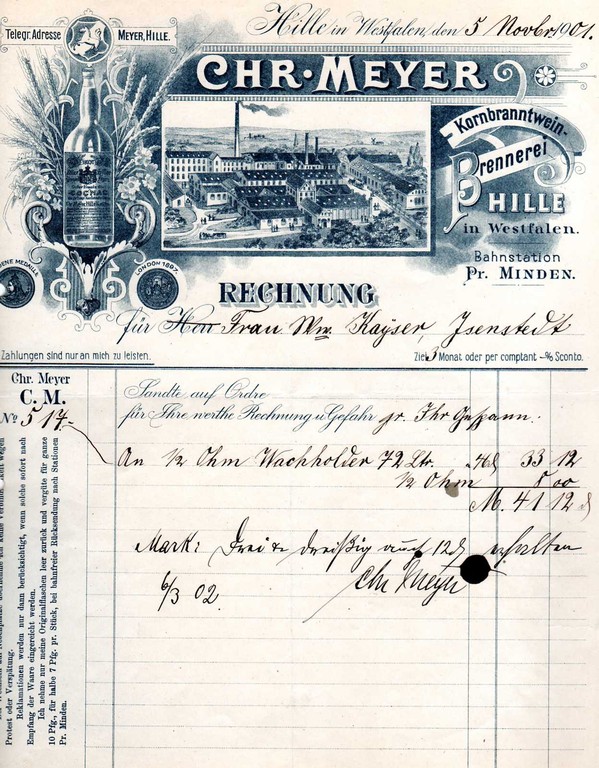 Telegr. Adresse MEYER, HILLE.
Hille in Westfalen, den 5 Novbr. 1901.
CHR. MEYER
Kornbranntwein-
Brennerei
HILLE
in Westfalen.
Bahnstation
Pr. MINDEN.
COGNAC
LONDON 1897
RECHNUNG
für Herrn Frau Ww Kayser, Isenstedt
Zahlungen sind nur an mich zu leisten.
Ziel 3 Monat oder per comptant –% Sconto.
Chr. Meyer
C. M.
No 517
Sandte auf Ordre
für Ihre werthe Rechnung u. Gefahr pr. Ihr Gespann.
An 1/2 Ohm Wachholder 72 Ltr. 33 12
1/2 Ohm 8 00
M. 41 12
Mark: Drei & dreißig auch 12 erhalten
6/3 02. Chr Meyer
Protest oder Verspätung.
Reklamationen werden nur dann berücksichtigt, wenn solche sofort nach
Empfang der Waare eingereicht werden.
Ich nehme nur meine Originalflaschen leer zurück und vergüte für ganze
10 Pfg., für halbe 7 Pfg. pr. Stück, bei bahnfreier Rücksendung nach Stationen
Pr. Minden.